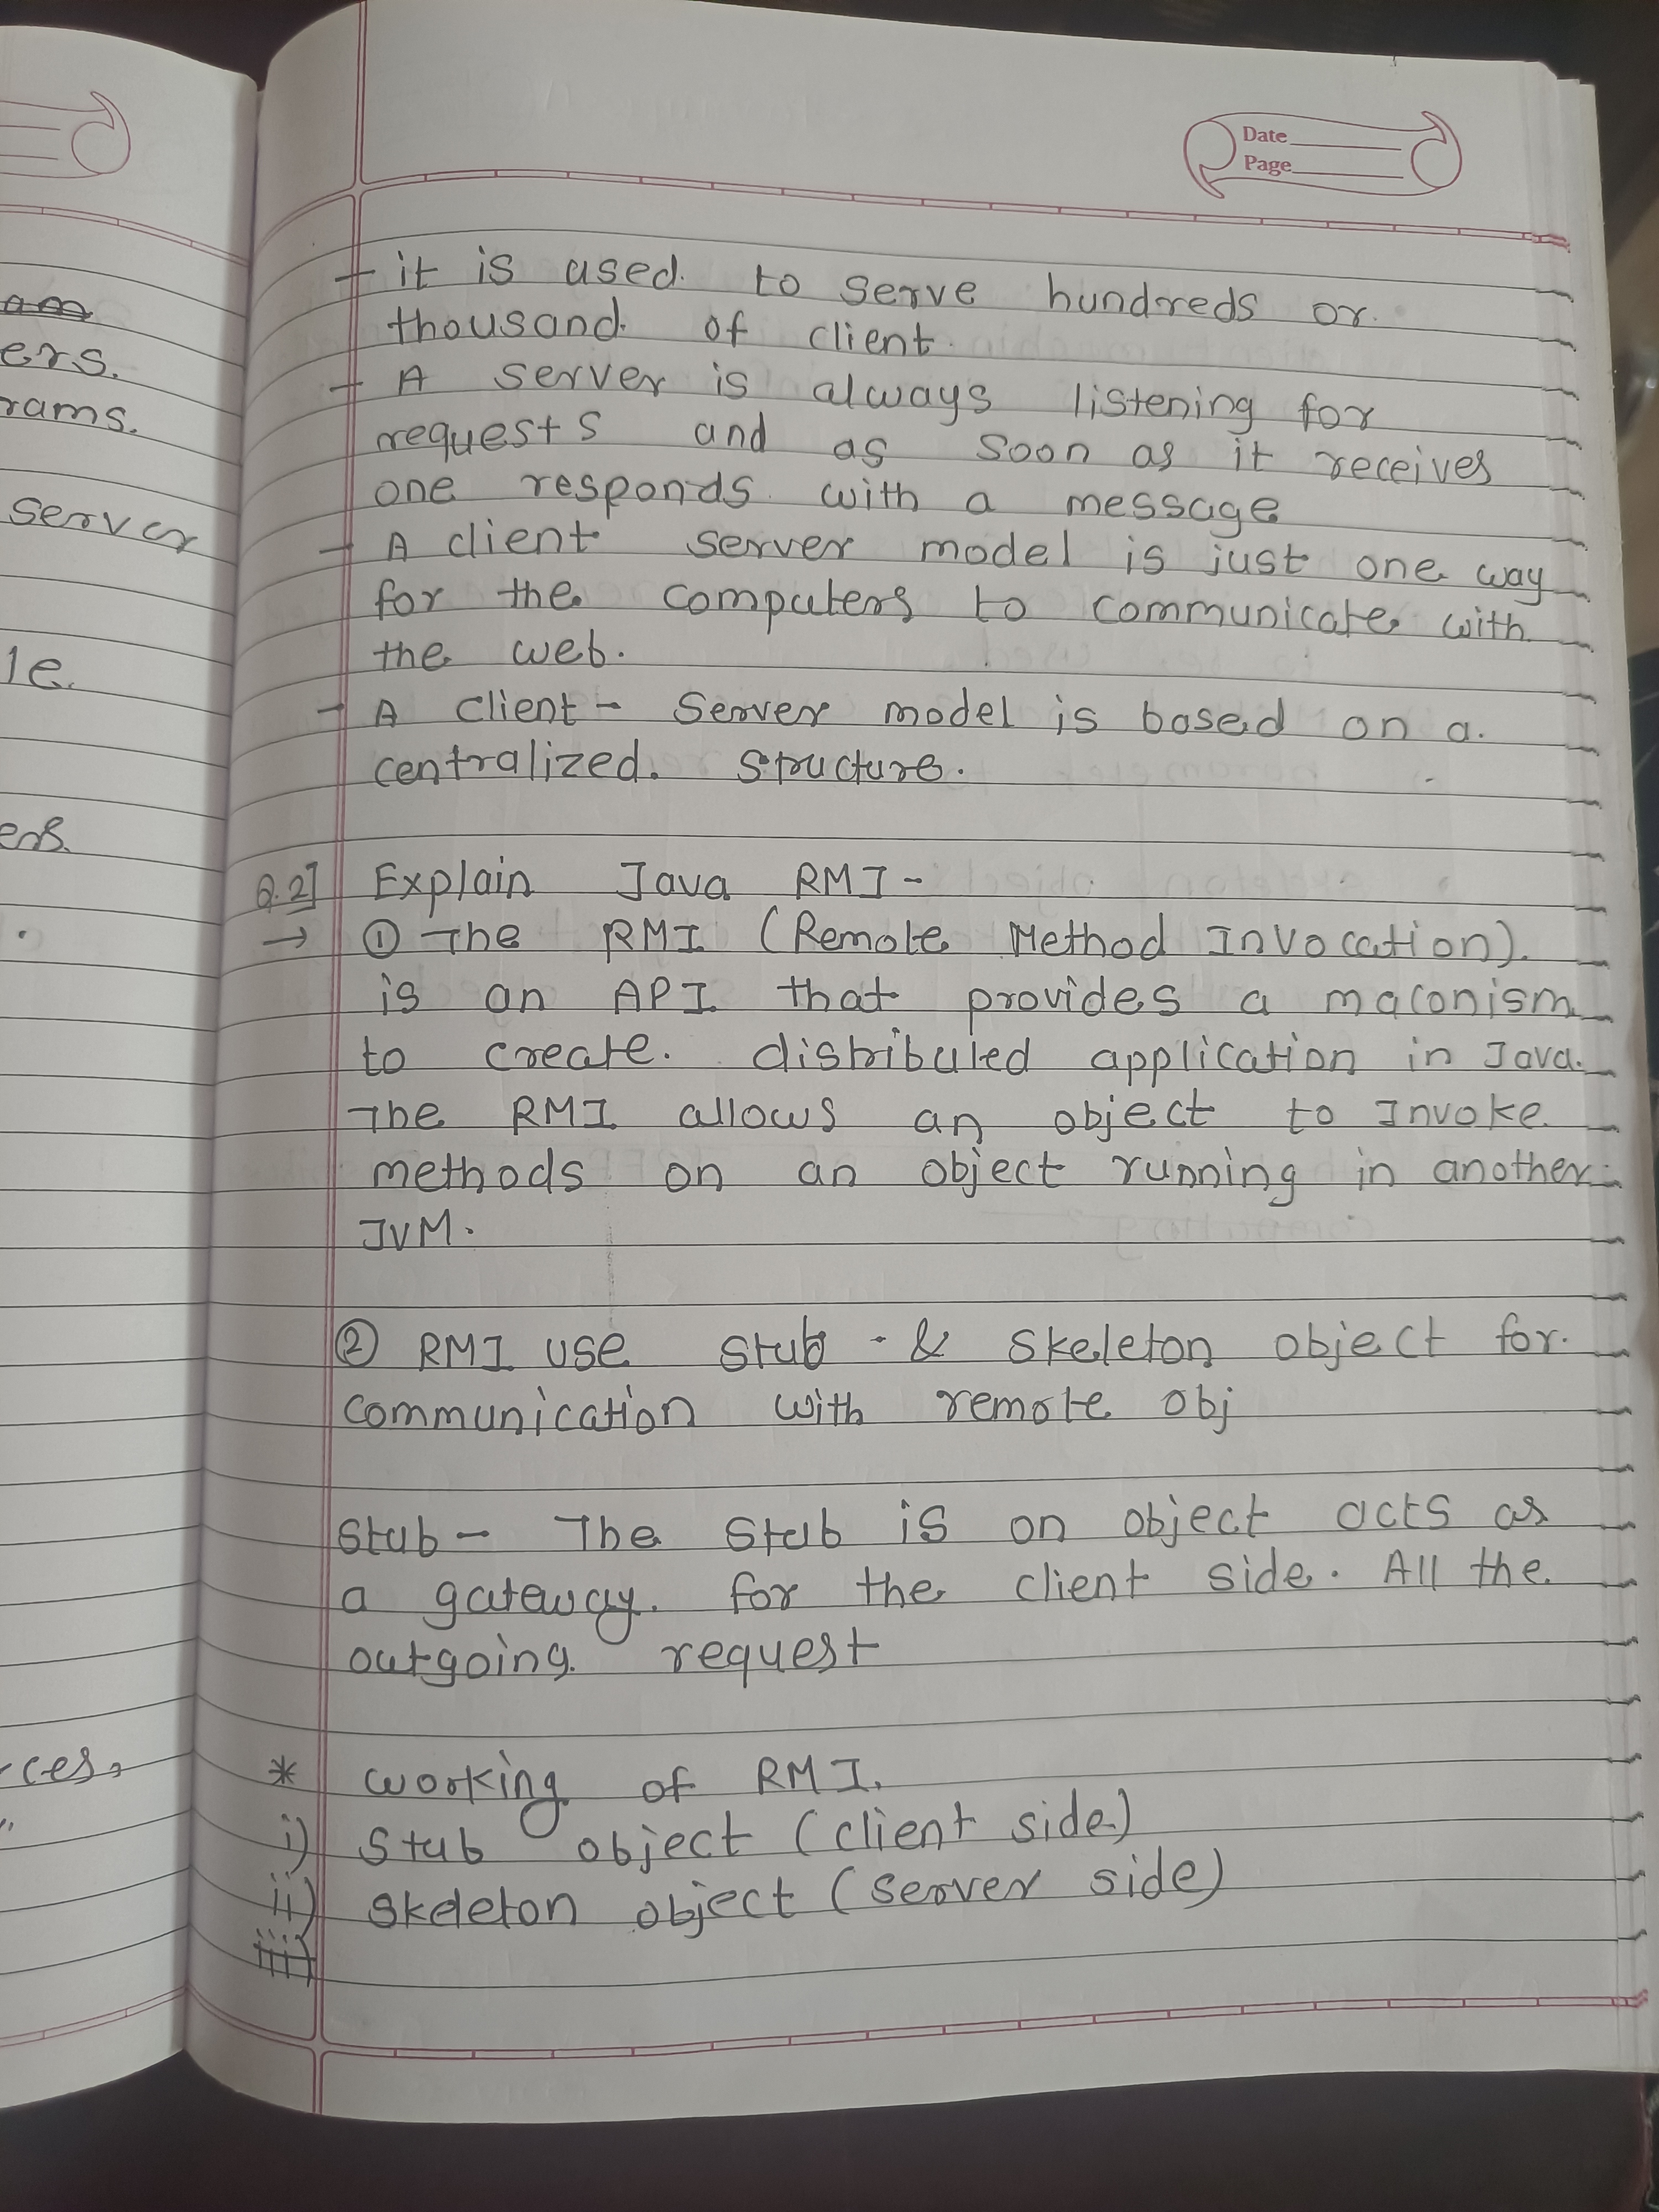 Date
Page
- it is used to serve hundreds or
thousand of client.
- A server is always listening for
requests and as soon as it receives
one responds with a message
- A client server model is just one way
for the computers to communicate with
the web.
- A client - Server model is based on a
centralized. structure.
Q.2] Explain Java RMI -
→ ① The RMI (Remote Method Invocation).
is an API that provides a maconism
to create. distributed application in Java.
The RMI allows an object to Invoke
methods on an object running in another
JVM.
② RMI use stub & skeleton object for
communication with remote obj
Stub - The stub is on object acts as
a gateway. for the client side. All the
outgoing request
* working of RMI.
i) Stub object (client side)
ii) skeleton object (server side)
iii)
ers.
rams.
server
le
ers.
ces,